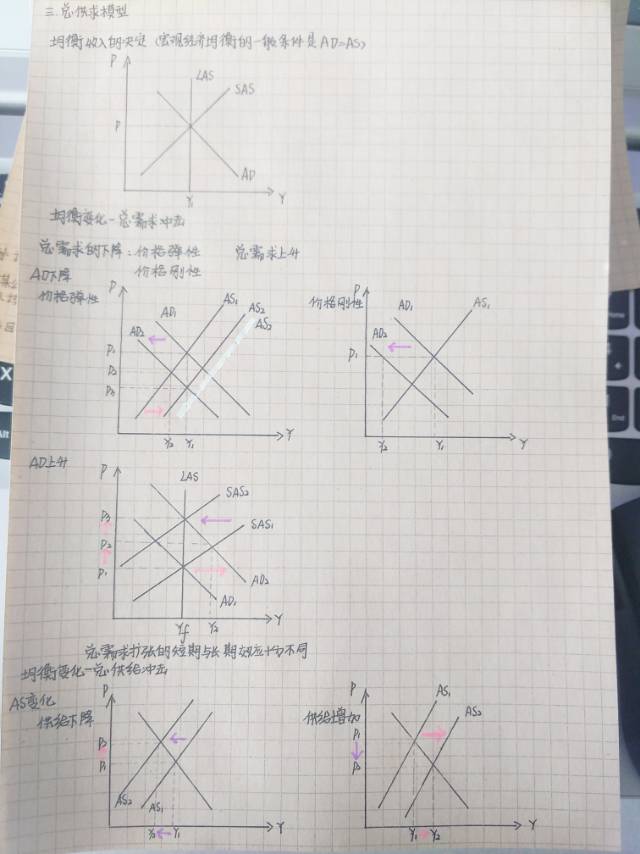 三.总供求模型
均衡收入的决定(宏观经济均衡的一般条件是AD=AS)
P
LAS
SAS
P
AD
Y₁
Y
均衡变化-总需求冲击
总需求的下降:价格弹性 总需求上升
价格刚性
AD下降
价格弹性
P
AD₁
AS₁
AS₂
AS₂
AD₂
P₁
P₂
P₃
Y₂ Y₁
Y
价格刚性
P
AD₁
AS₁
AD₂
P₁
Y₂
Y₁
Y
AD上升
P
LAS
SAS₂
P₃
SAS₁
P₂
P₁
AD₂
AD₁
Yf
Y₂
Y
总需求扩张的短期与长期效应十分不同
均衡变化-总供给冲击
AS变化
供给下降
P
P₂
P₁
AS₂
AS₁
Y₂
Y₁
Y
供给增加
P
AS₁
AS₂
P₁
P₂
Y₁
Y₂
Y